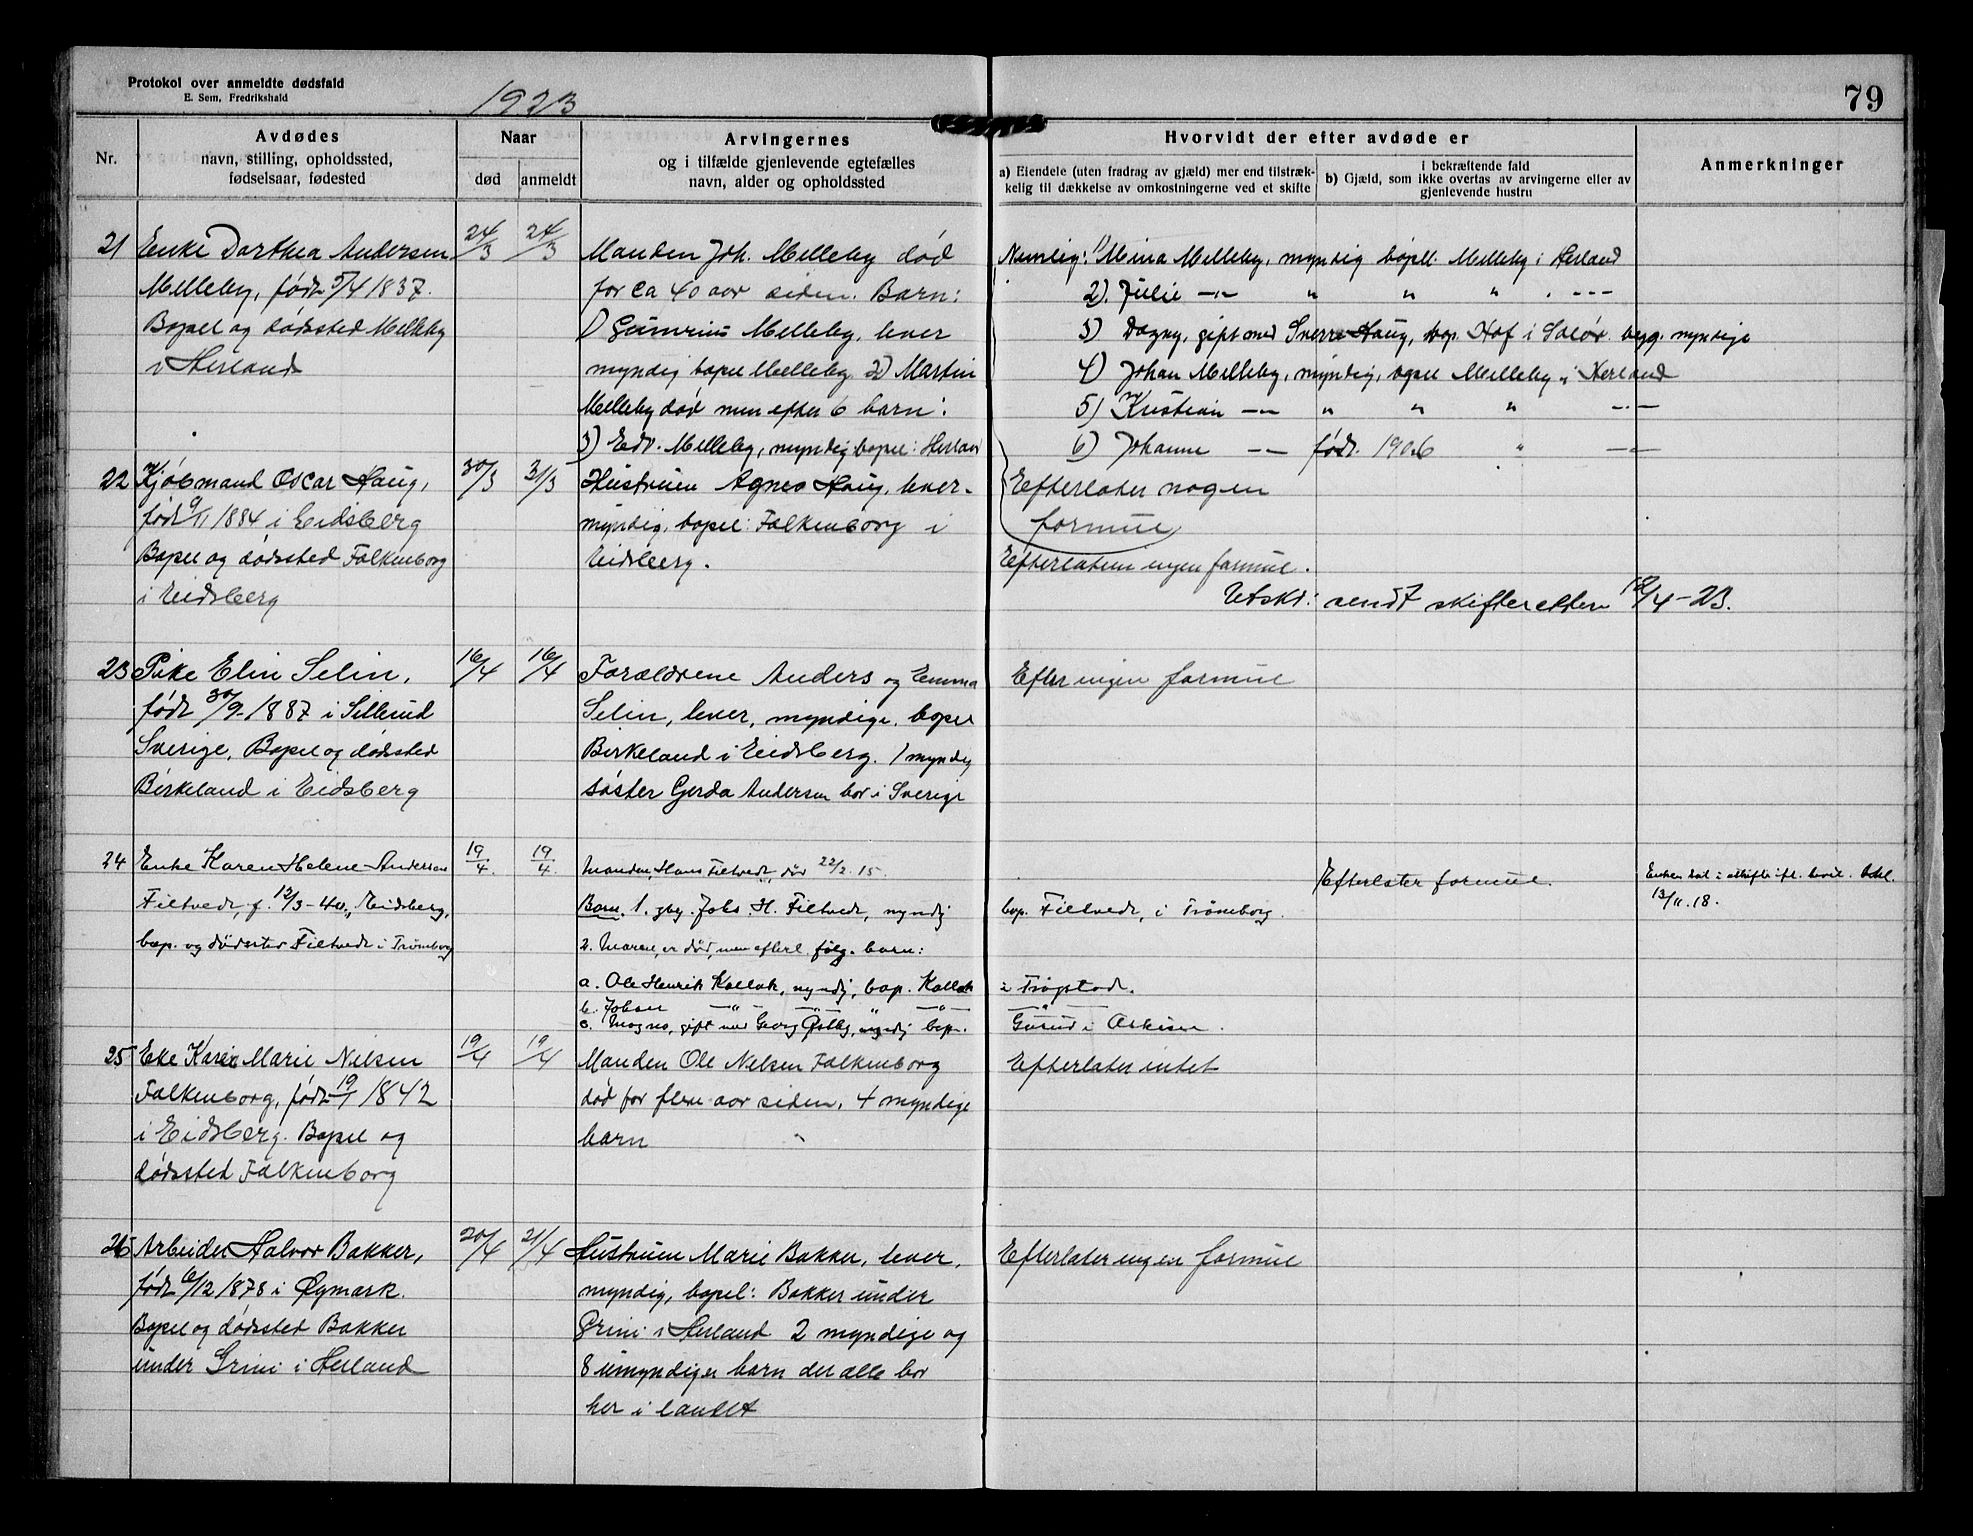 Protokol over anmeldte dødsfald
E. Sem, Fredrikshald
1923
79
Nr.
Avdødes
navn, stilling, opholdssted,
fødselsaar, fødested
Naar
død
anmeldt
Arvingernes
og i tilfælde gjenlevende egtefælles
navn, alder og opholdssted
Hvorvidt der efter avdøde er
a) Eiendele (uten fradrag av gjæld) mer end tilstræk-
kelig til dækkelse av omkostningerne ved et skifte
i bekræftende fald
b) Gjæld, som ikke overtas av arvingerne eller av
gjenlevende hustru
Anmerkninger
21 Enke Dorthea Andersen
Melleby, født 5/4 1837.
Bopel og dødsted Melleby
i Herland
24/3 24/3
Manden Joh. Melleby død
for ca 40 aar siden. Barn:
1) Melleby, lever
myndig bopel Melleby. 2) Martin
Melleby død men efter 6 barn:
3) Edv. Melleby, myndig, bopel: Herland
Nemlig: 1) Mina Melleby, myndig bopel Melleby i Herland
2). Julie —"— " " " . ---
3) Dagny, gift med Sverre Haug, bop. Hof i Solør. begg. myndige
4) Johan Melleby, myndig, bopel Melleby i Herland
5) Kristian —"— " " " —"—
6) Johanne —"— født. 1906 " —"—
Efterlater nogen
formue
22 Kjøbmand Oscar Haug,
født 9/11 1884 i Eidsberg
Bopel og dødssted Falkenborg
i Eidsberg
30/3 31/3
Hustruen Agnes Haug, lever.
myndig, bopel: Falkenborg i
Eidsberg.
Efterlater ingen formue.
Utskr: sendt skifteretten 12/4-23.
23 Pike Elin Selin,
født 30/9-1887 i Sillerud
Sverige, Bopel og dødssted
Birkeland i Eidsberg
16/4 16/4
Forældrene Anders og Emma
Selin, lever, myndige, bopel
Birkeland i Eidsberg. 1 myndig
søster Gerda Andersen bor i Sverige
Efter ingen formue
24 Enke Karen Helene Andersen
Filtvedt, f. 12/3-40., Eidsberg,
bop. og dødssted Filtvedt i Trømborg
19/4. 19/4.
Manden, Hans Filtvedt, død 22/2. 15.
Barn. 1. gbr. Johs. H. Filtvedt, myndig
bop. Filtvedt, i Trømborg.
2. Maren, er død, men efterl. følg. barn:
a. Ole Henrik Kallak, myndig, bop. Kallak
i Trøgstad.
b. Johan —"— —"— " —"—
—"—
c. Magna, gift med Georg Østby, myndig bop.
i Askim.
Efterlater formue.
Enken sat i uskifte ifl. bevil. bekl.
13/11. 18.
25 Eke Karen Marie Nilsen
Falkenborg, født 19/1 1842
i Eidsberg. Bopel og
dødssted Falkenborg
19/4 19/4
Manden Ole Nilsen Falkenborg
død for flere aar siden, 4 myndige
barn
Efterlater intet
26 Arbeider Halvor Bakker,
født 6/12 1878 i Øymark.
Bopel og dødssted Bakker
under Grini i Herland
20/4 21/4
Hustruen Marie Bakker, lever,
myndig, bopel: Bakker under
Grini i Herland 2 myndige og
8 umyndige barn der alle bor
her i landet
Efterlater ingen formue